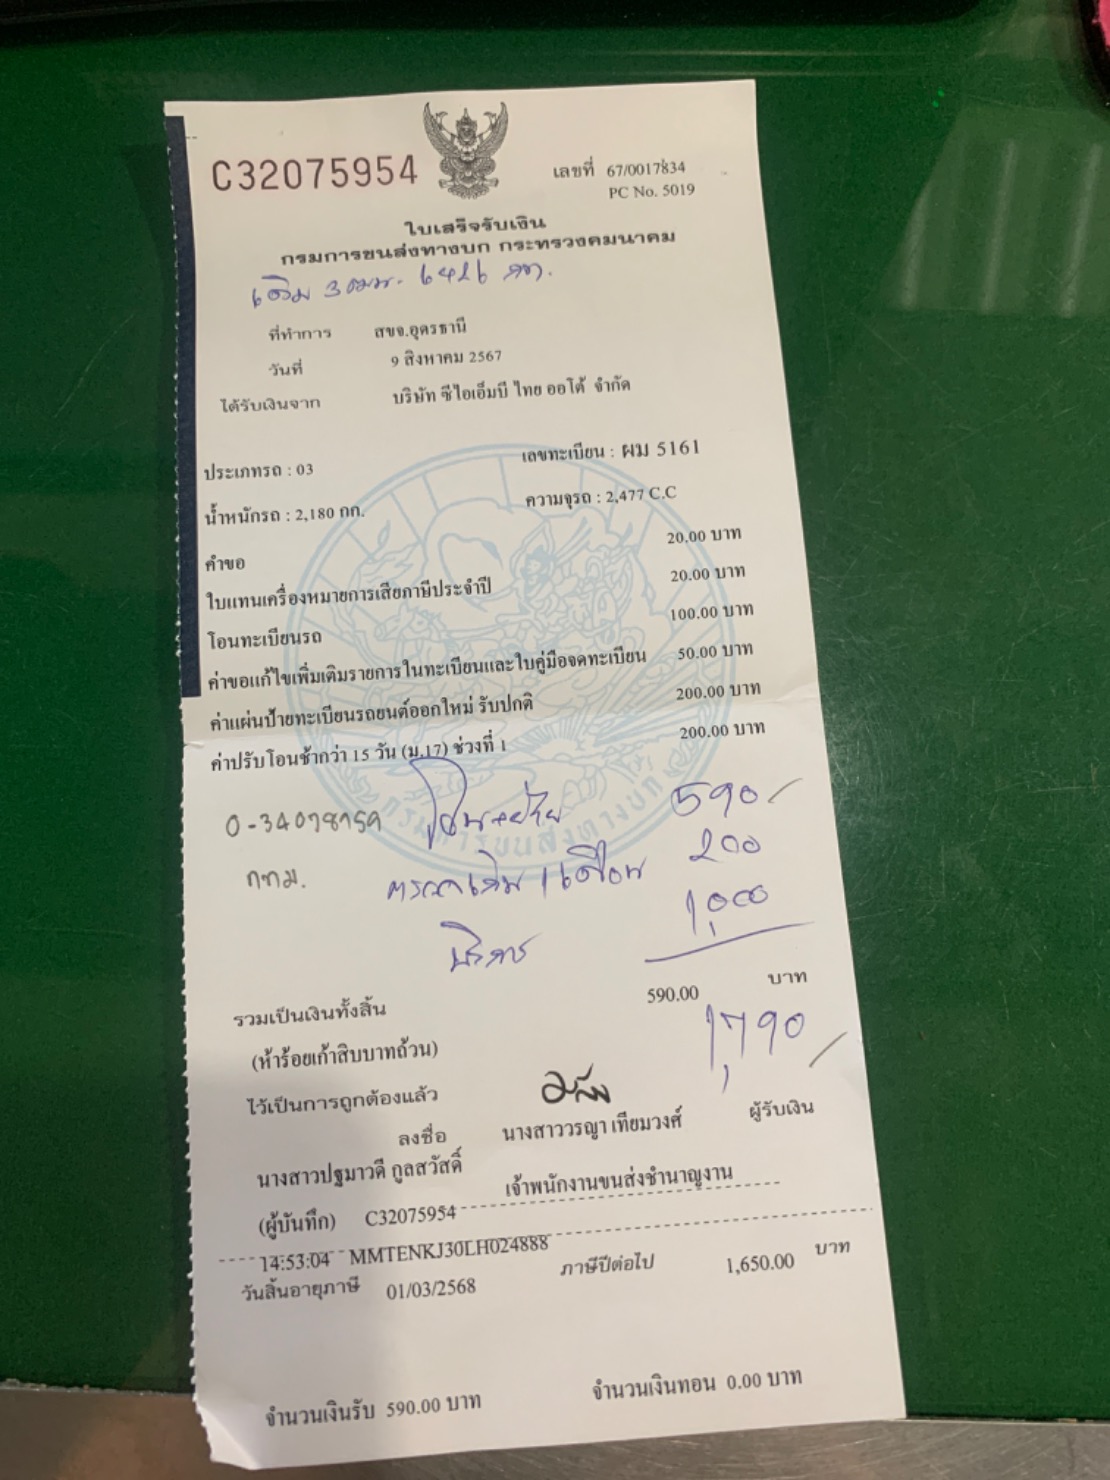 C32075954
เลขที่ 67/0017834
PC No. 5019
ใบเสร็จรับเงิน
กรมการขนส่งทางบก กระทรวงคมนาคม
เดิม 3ฒฆ. 6426 กท.
ที่ทำการ สขจ.อุดรธานี
วันที่ 9 สิงหาคม 2567
ได้รับเงินจาก บริษัท ซีไอเอ็มบี ไทย ออโต้ จำกัด
ประเภทรถ : 03 เลขทะเบียน : ผม 5161
น้ำหนักรถ : 2,180 กก. ความจุรถ : 2,477 C.C
คำขอ 20.00 บาท
ใบแทนเครื่องหมายการเสียภาษีประจำปี 20.00 บาท
โอนทะเบียนรถ 100.00 บาท
ค่าขอแก้ไขเพิ่มเติมรายการในทะเบียนและใบคู่มือจดทะเบียน 50.00 บาท
ค่าแผ่นป้ายทะเบียนรถยนต์ออกใหม่ รับปกติ 200.00 บาท
ค่าปรับโอนช้ากว่า 15 วัน (ม.17) ช่วงที่ 1 200.00 บาท
กรมการขนส่งทางบก
0-34078759 โอน+ย้าย 590/
กทม. ตรวจเดิม 1 เดือน 200
บริการ 1,000
รวมเป็นเงินทั้งสิ้น 590.00 บาท
(ห้าร้อยเก้าสิบบาทถ้วน) 1,790/
ไว้เป็นการถูกต้องแล้ว
ลงชื่อ นางสาววรญา เทียมวงศ์ ผู้รับเงิน
นางสาวปฐมาวดี กูลสวัสดิ์ เจ้าพนักงานขนส่งชำนาญงาน
(ผู้บันทึก) C32075954
14:53:04 MMTENKJ30LH024888
วันสิ้นอายุภาษี 01/03/2568 ภาษีปีต่อไป 1,650.00 บาท
จำนวนเงินรับ 590.00 บาท จำนวนเงินทอน 0.00 บาท